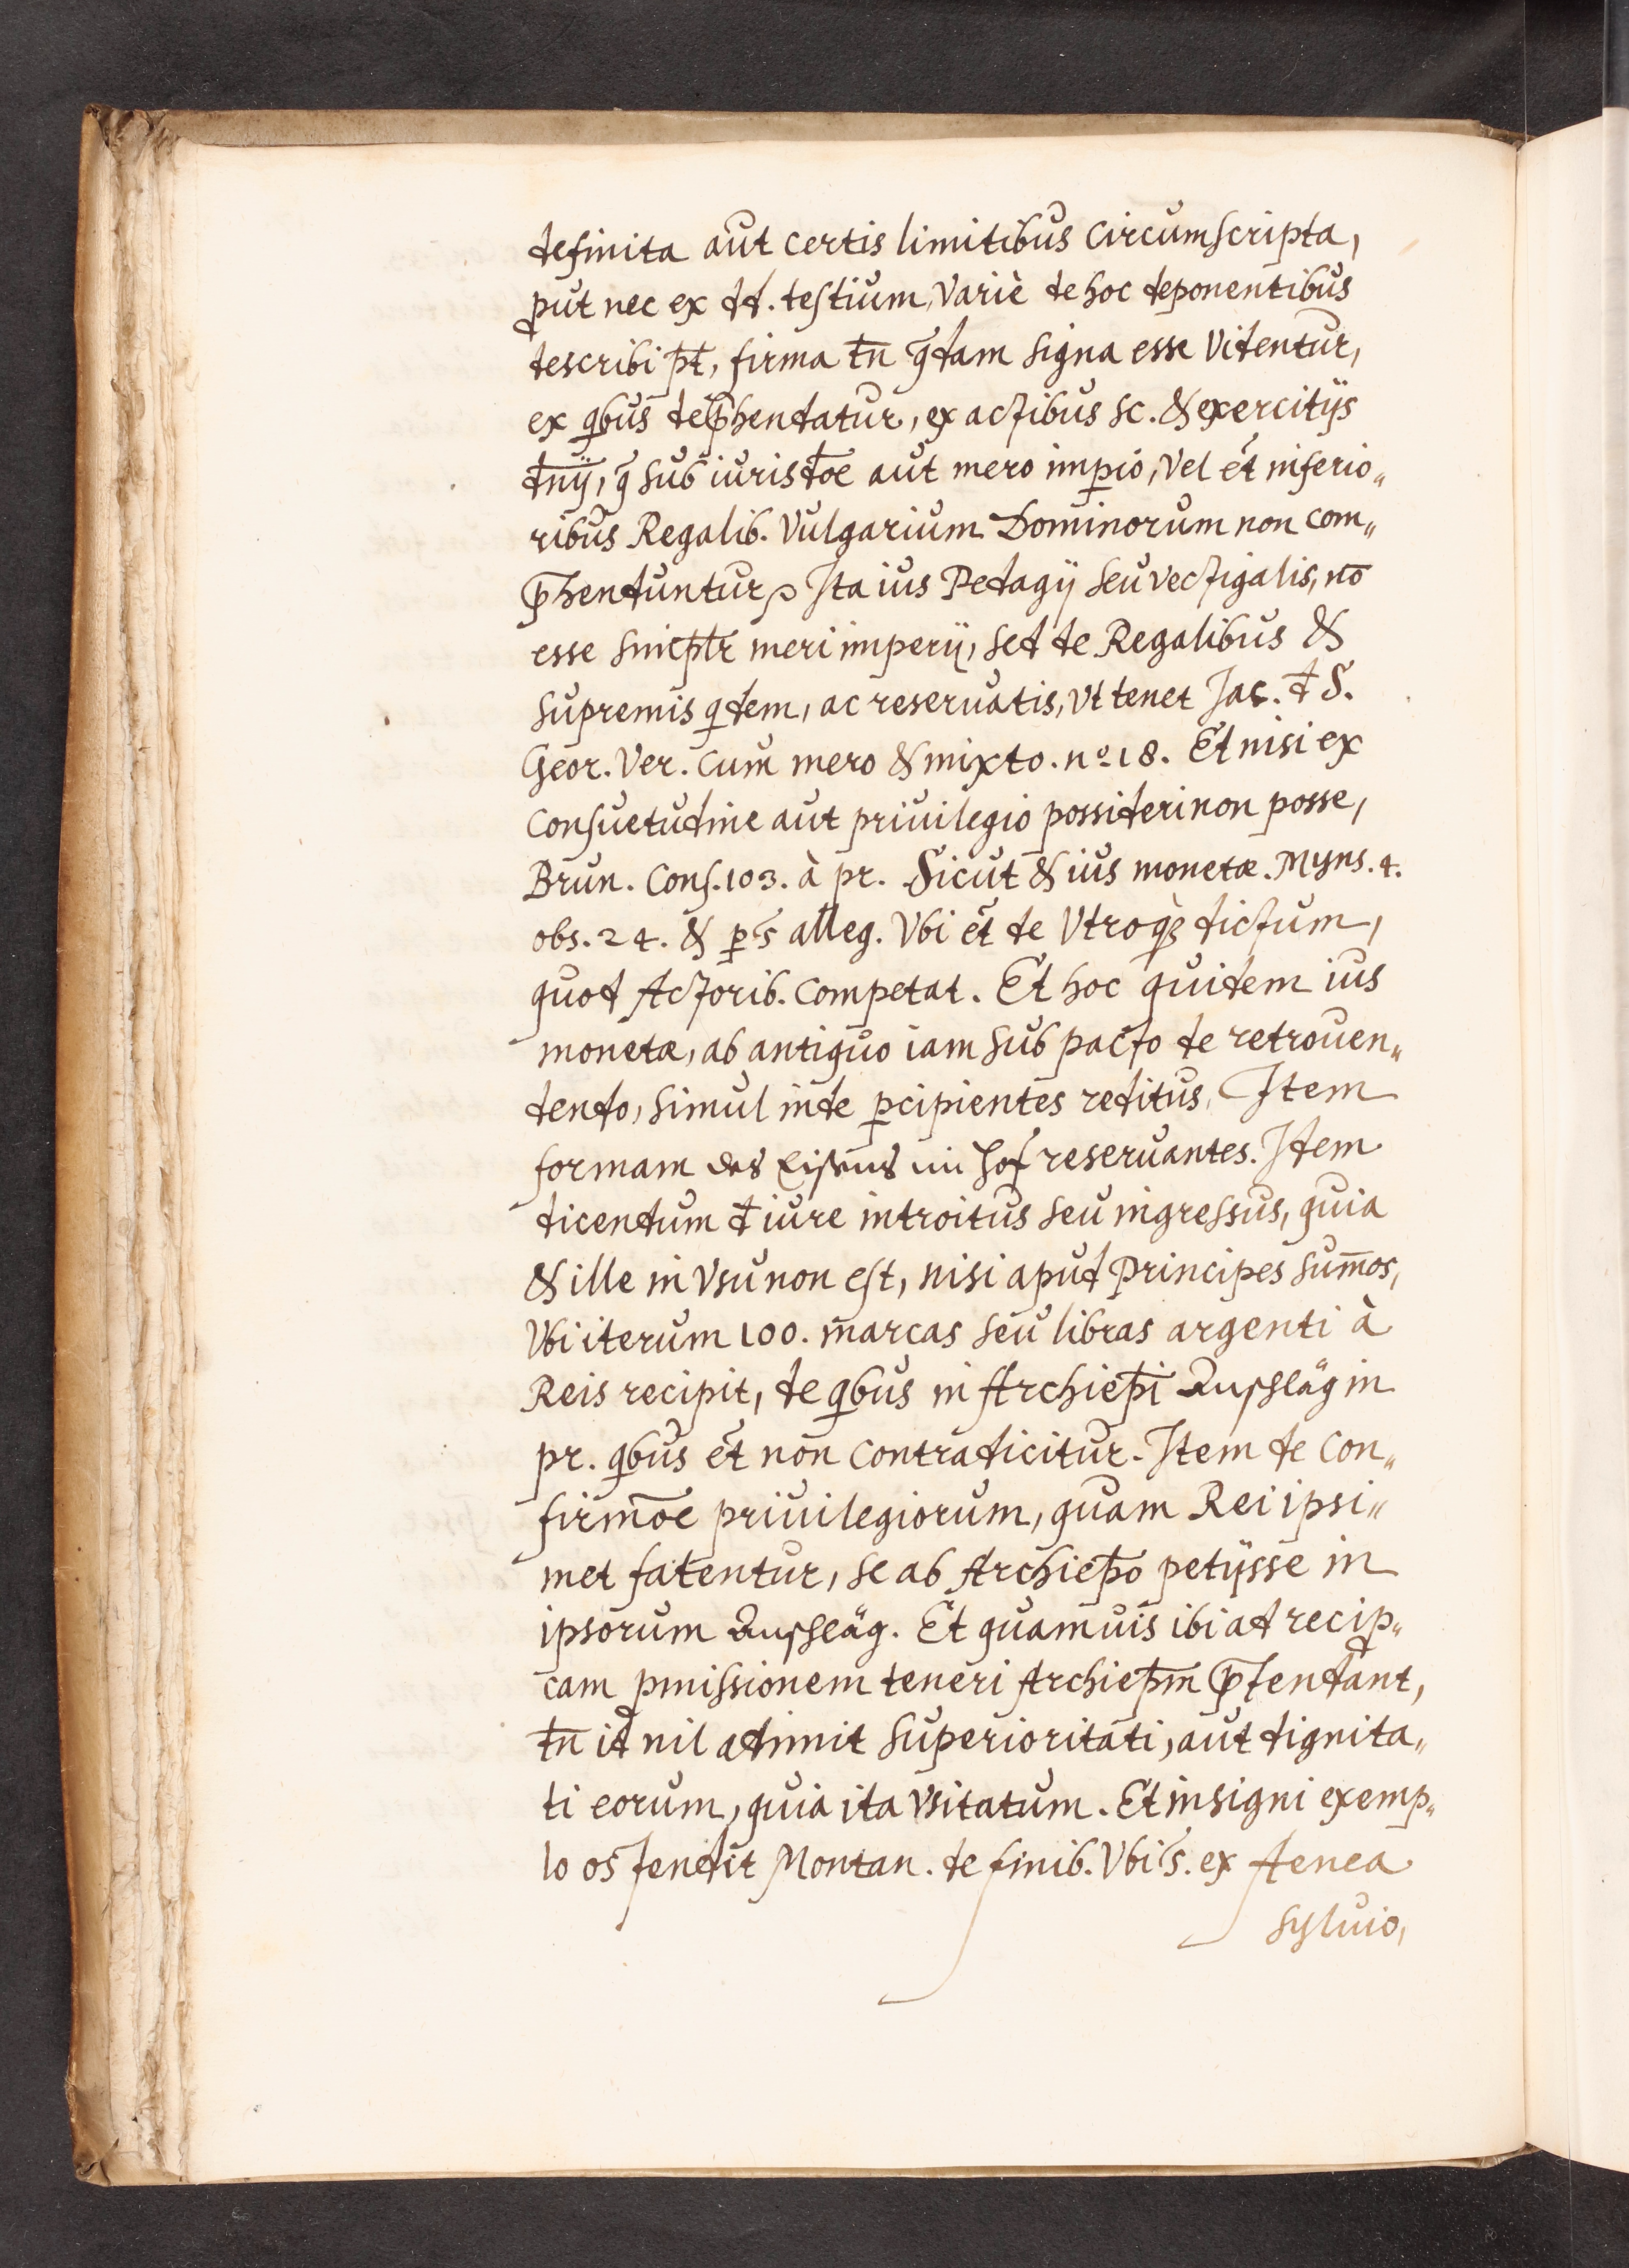 definita aut certis limitibus circumscripta,
ꝓut nec ex dd. testium, variè de hoc deponentibus
describi pt̄, firma tn̄ q̄dam signa esse videntur,
ex qbus dep̄hendatur, ex actibus sc. & exercitijs
dn̄ij, q̄ sub iurisdōe aut mero imꝑio, vel ēt inferio„
ribus Regalib. vulgarium Dominorum non com„
p̄henduntur, Ita ius Pedagij seu vectigalis, nō
esse simꝑlr meri imperij, sed de Regalibus &
supremis qdem, ac reseruatis, vt tenet Jac. đ S.
Geor. Ver. cum mero & mixto. nº 18. Et nisi ex
Consuetudine aut priuilegio possideri non posse,
Brun. Cons. 103. à pr. Sicut & ius monetæ. Myns. 4.
obs. 24. & ꝑ s alleg. Vbi ēt de Vtroqꝫ dictum,
quod Actorib. competat. Et hoc quidem ius
monetæ, ab antiquo iam sub pacto de retrouen„
dendo, simul inde ꝑcipientes reditus, Item
formam des Eisens im Hof reseruantes. Item
dicendum đ iure introitus seu ingressus, quia
& ille in vsu non est, nisi apud Principes sum̄os,
Vbi iterum 100. marcas seu libras argenti à
Reis recipit, de qbus in Archiep̄i Aufschläg in
pr. qbus ēt non contradicitur. Item de con„
firmōe priuilegiorum, quam Rei ipsi„
met fatentur, se ab Archiep̄o petijsse in
ipsorum Aufschläg. Et quamuis ibi ad recip„
cam ꝓmissionem teneri Archiep̄m p̄tendant,
tn̄ id nil adimit superioritati, aut dignita„
ti eorum, quia ita vsitatum. Et insigni exemp„
lo ostendit Montan. de finib. Vbi s. ex Aenea
Syluio,